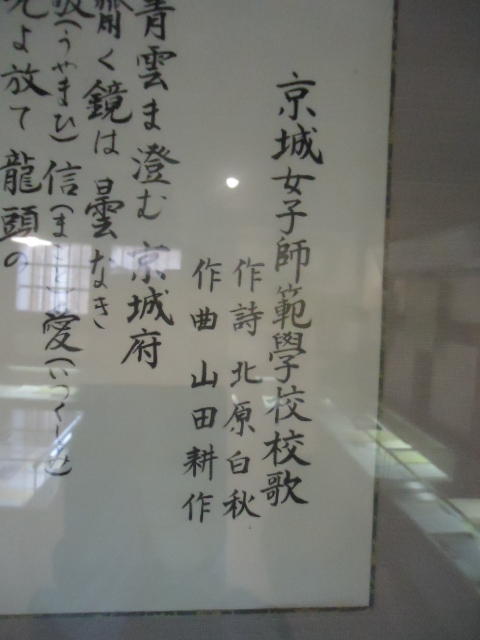 京城女子師範學校校歌
作詩 北原白秋
作曲 山田耕作
青雲ま澄む 京城府
齋く鏡は 曇なき
敬(うやまひ) 信(まこと) 愛(いつくしみ)
光よ放て 龍頭の